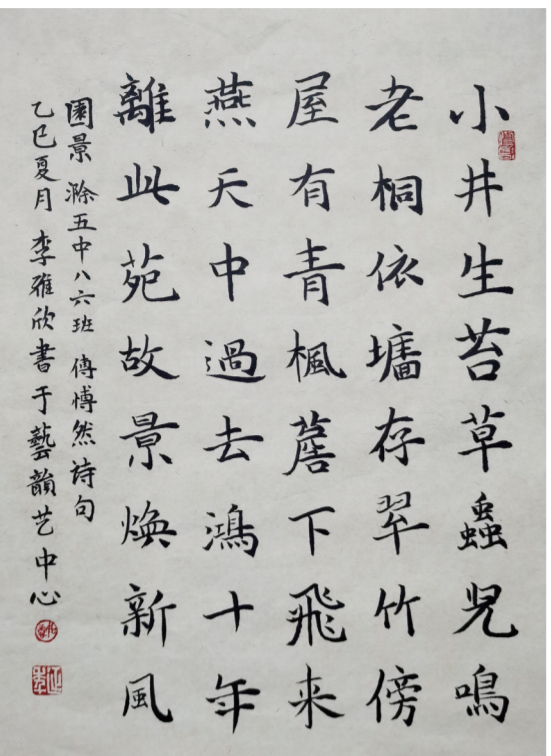 小井生苔草蟲児鳴
老桐依墻存翠竹傍
屋有青楓蓎下飛来
燕天中過去鴻十年
離此苑故景焕新風
園景 滁五中八六班 傅博然詩句
乙巳夏月 李雅欣書于藝韻艺中心